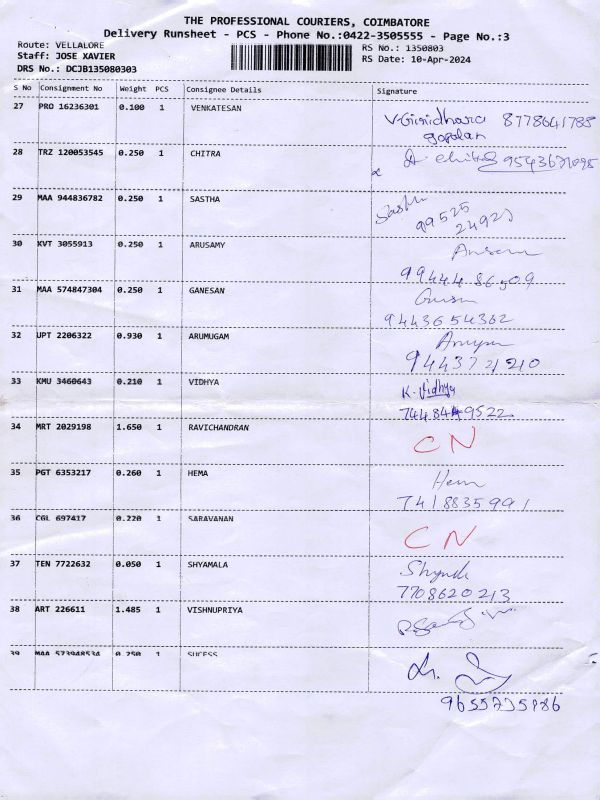 THE PROFESSIONAL COURIERS, COIMBATORE
Delivery Runsheet - PCS - Phone No.:0422-3505555 - Page No.:3
Route: VELLALORE
Staff: JOSE XAVIER
DRS No.: DCJB135080303
RS No.: 1350803
RS Date: 10-Apr-2024
S No Consignment No Weight PCS Consignee Details Signature
27 PRO 16236301 0.100 1 VENKATESAN
V-Giridhara 8778641788
gopalan
28 TRZ 120053545 0.250 1 CHITRA
29 MAA 944836782 0.250 1 SASTHA
99525
24923
30 KVT 3055913 0.250 1 ARUSAMY
99444 86509
31 MAA 574847304 0.250 1 GANESAN
9443654362
32 UPT 2206322 0.930 1 ARUMUGAM
9443721210
33 KMU 3460643 0.210 1 VIDHYA K. Vidhya
7448449522
34 MRT 2029198 1.650 1 RAVICHANDRAN CN
35 PGT 6353217 0.260 1 HEMA Hem
7418835991
36 CGL 697417 0.220 1 SARAVANAN CN
37 TEN 7722632 0.050 1 SHYAMALA
7708620213
38 ART 226611 1.485 1 VISHNUPRIYA
39 MAA 573948534 0.250 1 SUCESS
9655735186